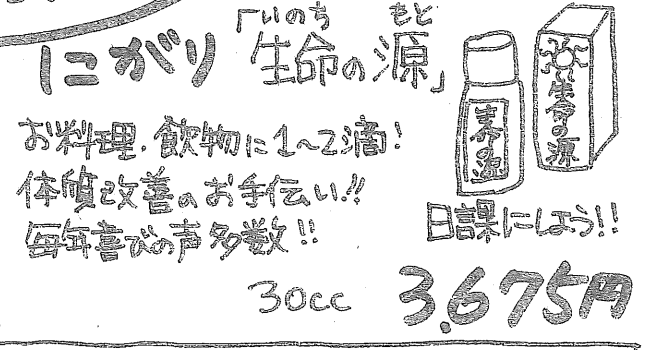 にがり「生命の源」
いのち もと
お料理、飲物に1~2滴!
体質改善のお手伝い!!
毎年喜びの声多数!!
30cc
生命の源
生命の源
日課にしよう!!
3,675円